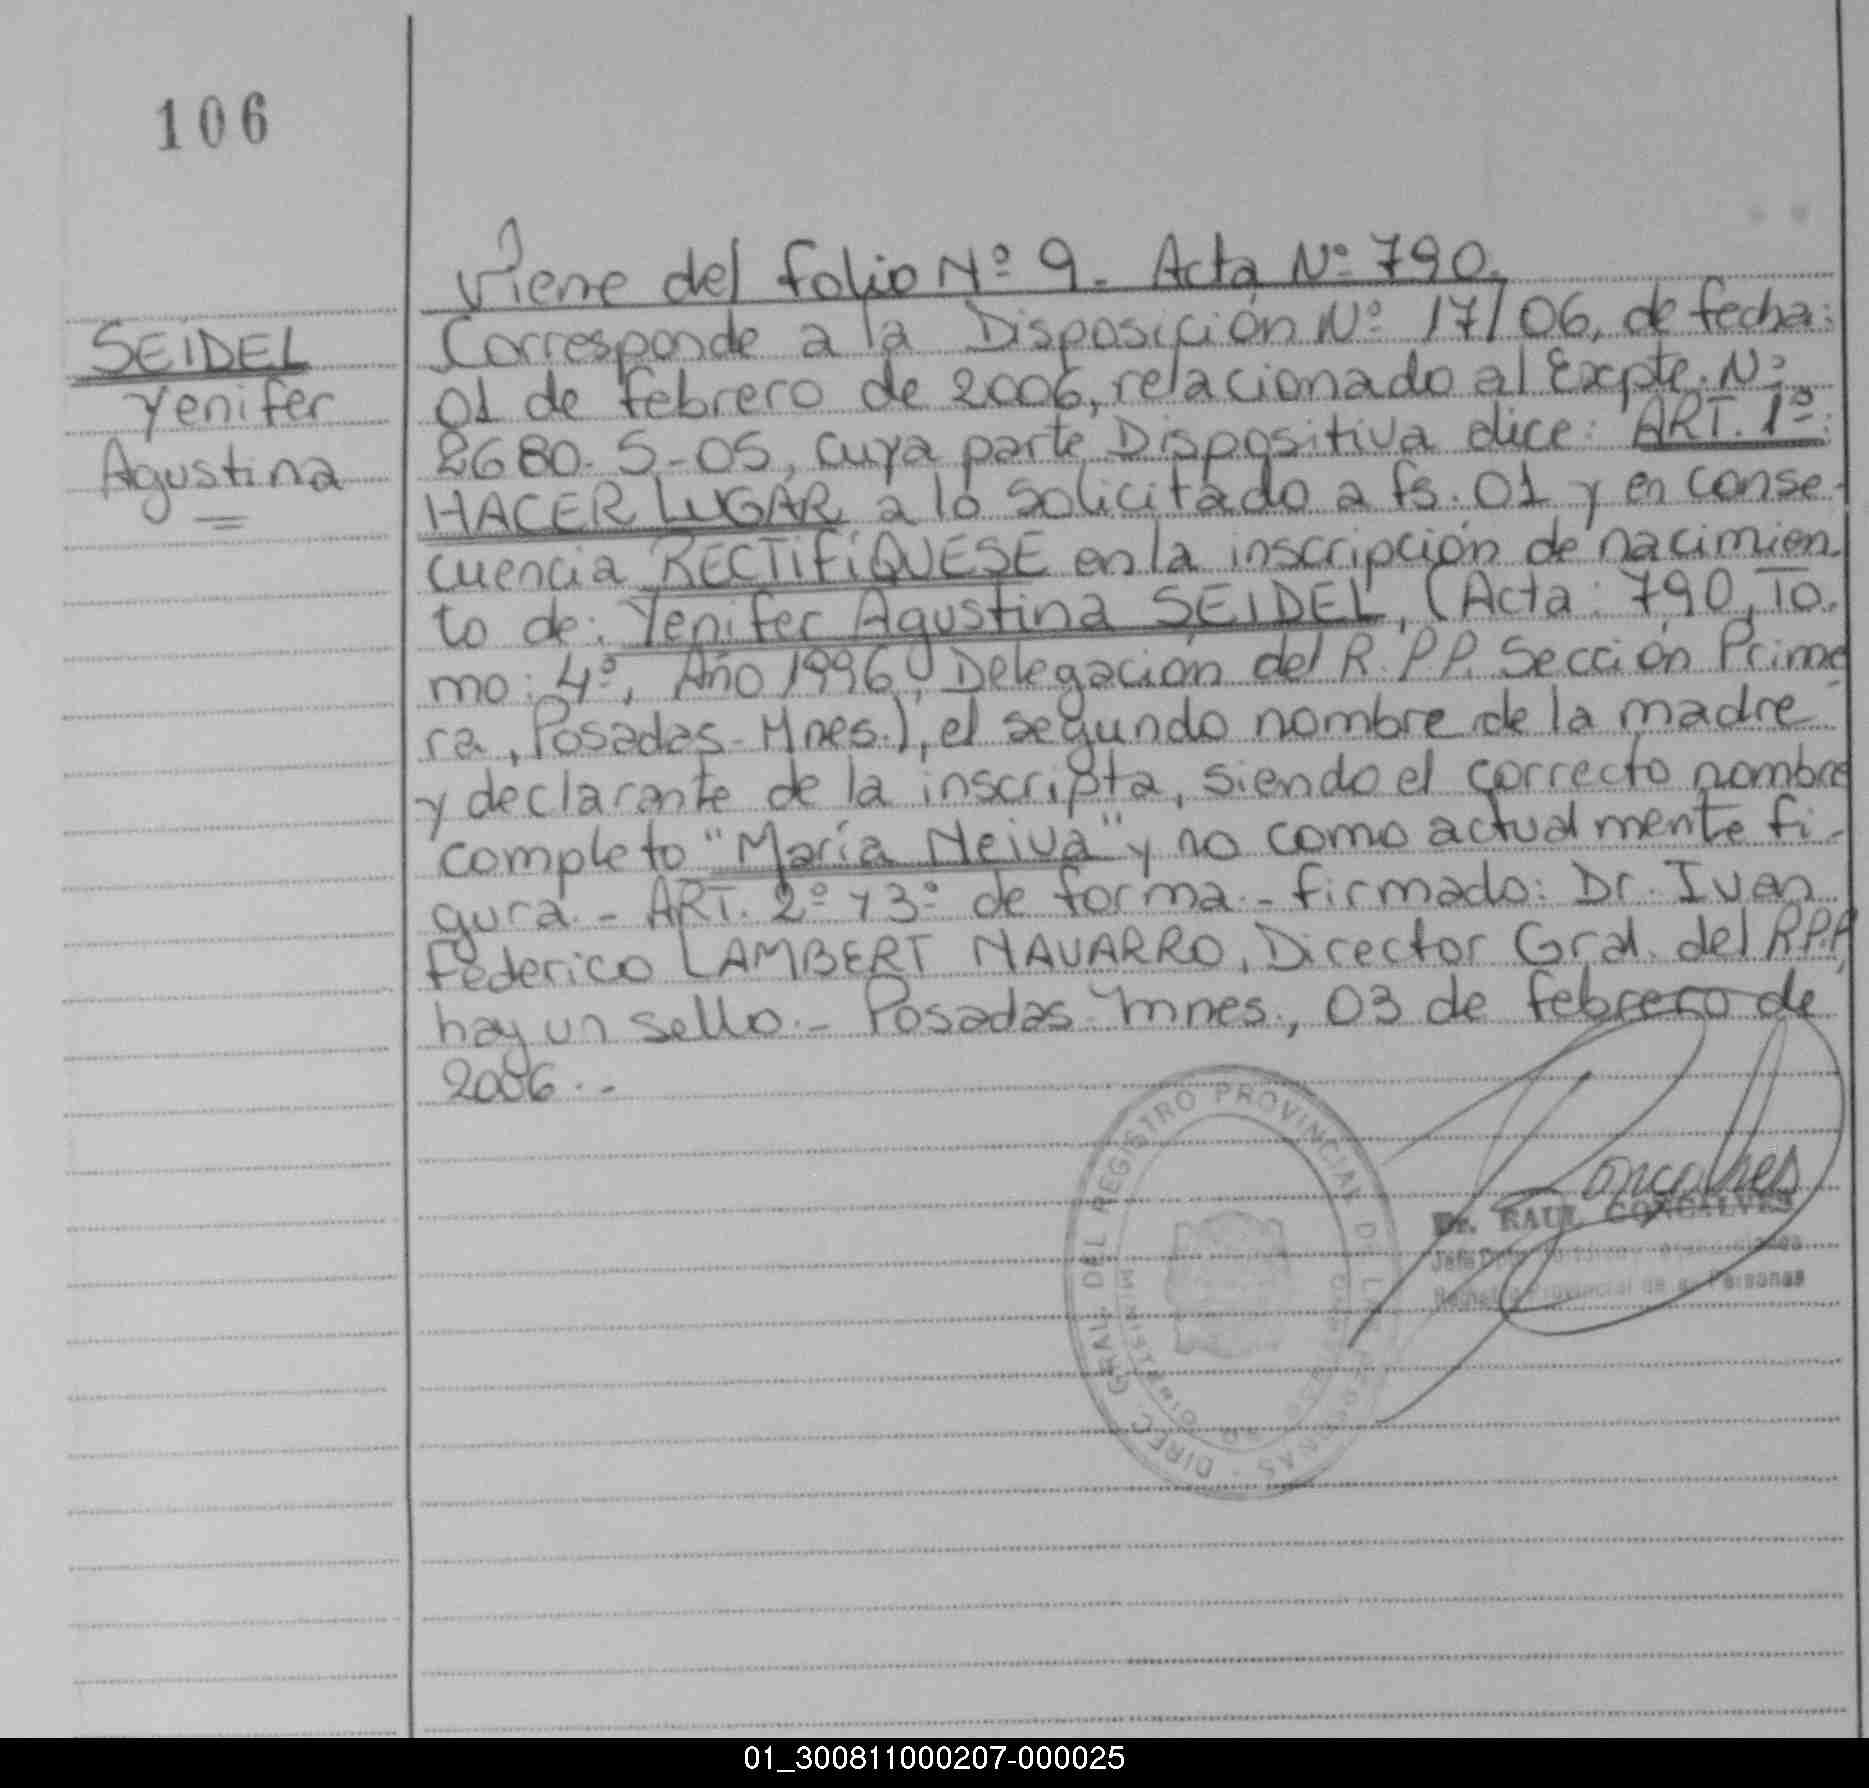 106
SEIDEL
Yenifer
Agustina
Viene del folio Nº 9. Acta Nº 790.
Corresponde a la Disposición Nº 17/06, de fecha:
01 de febrero de 2006, relacionado al Expte. Nº
2680-S-05, cuya parte Dispositiva dice: ART. 1º:
HACER LUGAR a lo solicitado a fs. 01 y en conse-
cuencia RECTIFIQUESE en la inscripción de nacimien-
to de: Yenifer Agustina SEIDEL, (Acta: 790, To-
mo: 4º, Año 1996, Delegación del R.P.P. Sección Prime-
ra, Posadas-Mnes.), el segundo nombre de la madre
y declarante de la inscripta, siendo el correcto nombre
completo "María Neiva" y no como actualmente fi-
gura.- ART. 2º y 3º de forma.- firmado: Dr. Ivan
Federico LAMBERT NAVARRO, Director Gral. del R.P.P,
hay un sello.- Posadas-Mnes., 03 de febrero de
2006.-
DIREC. GRAL. DEL REGISTRO PROVINCIAL DE LAS PERSONAS
MINISTERIO
Dr. RAUL GONCALVES
Registro Provincial de las Personas
01_300811000207-000025